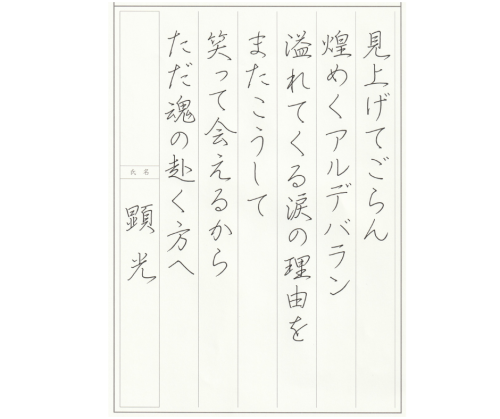 見上げてごらん
煌めくアルデバラン
溢れてくる涙の理由を
またこうして
笑って会えるから
ただ魂の赴く方へ
氏名
顕光